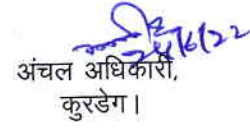 24/6/22
अंचल अधिकारी,
कुरडेग।